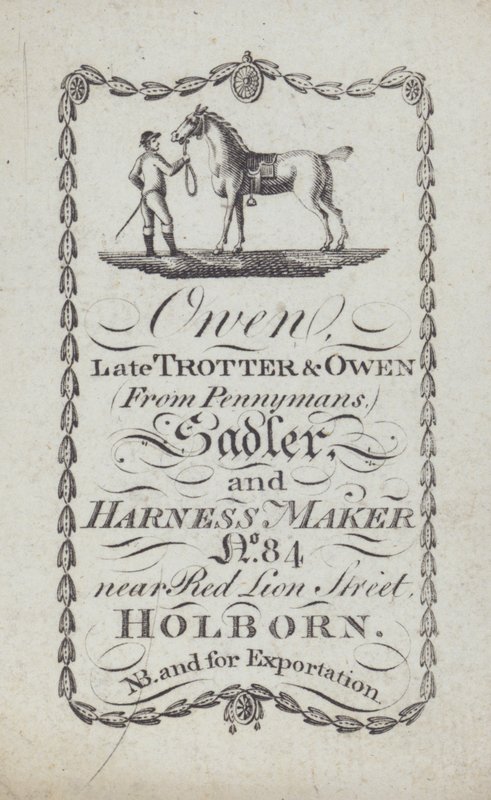 Owen,
Late TROTTER & OWEN
(From Pennymans,)
Sadler,
and
HARNESS MAKER
No. 84
near Red Lion Street,
HOLBORN.
NB. and for Exportation